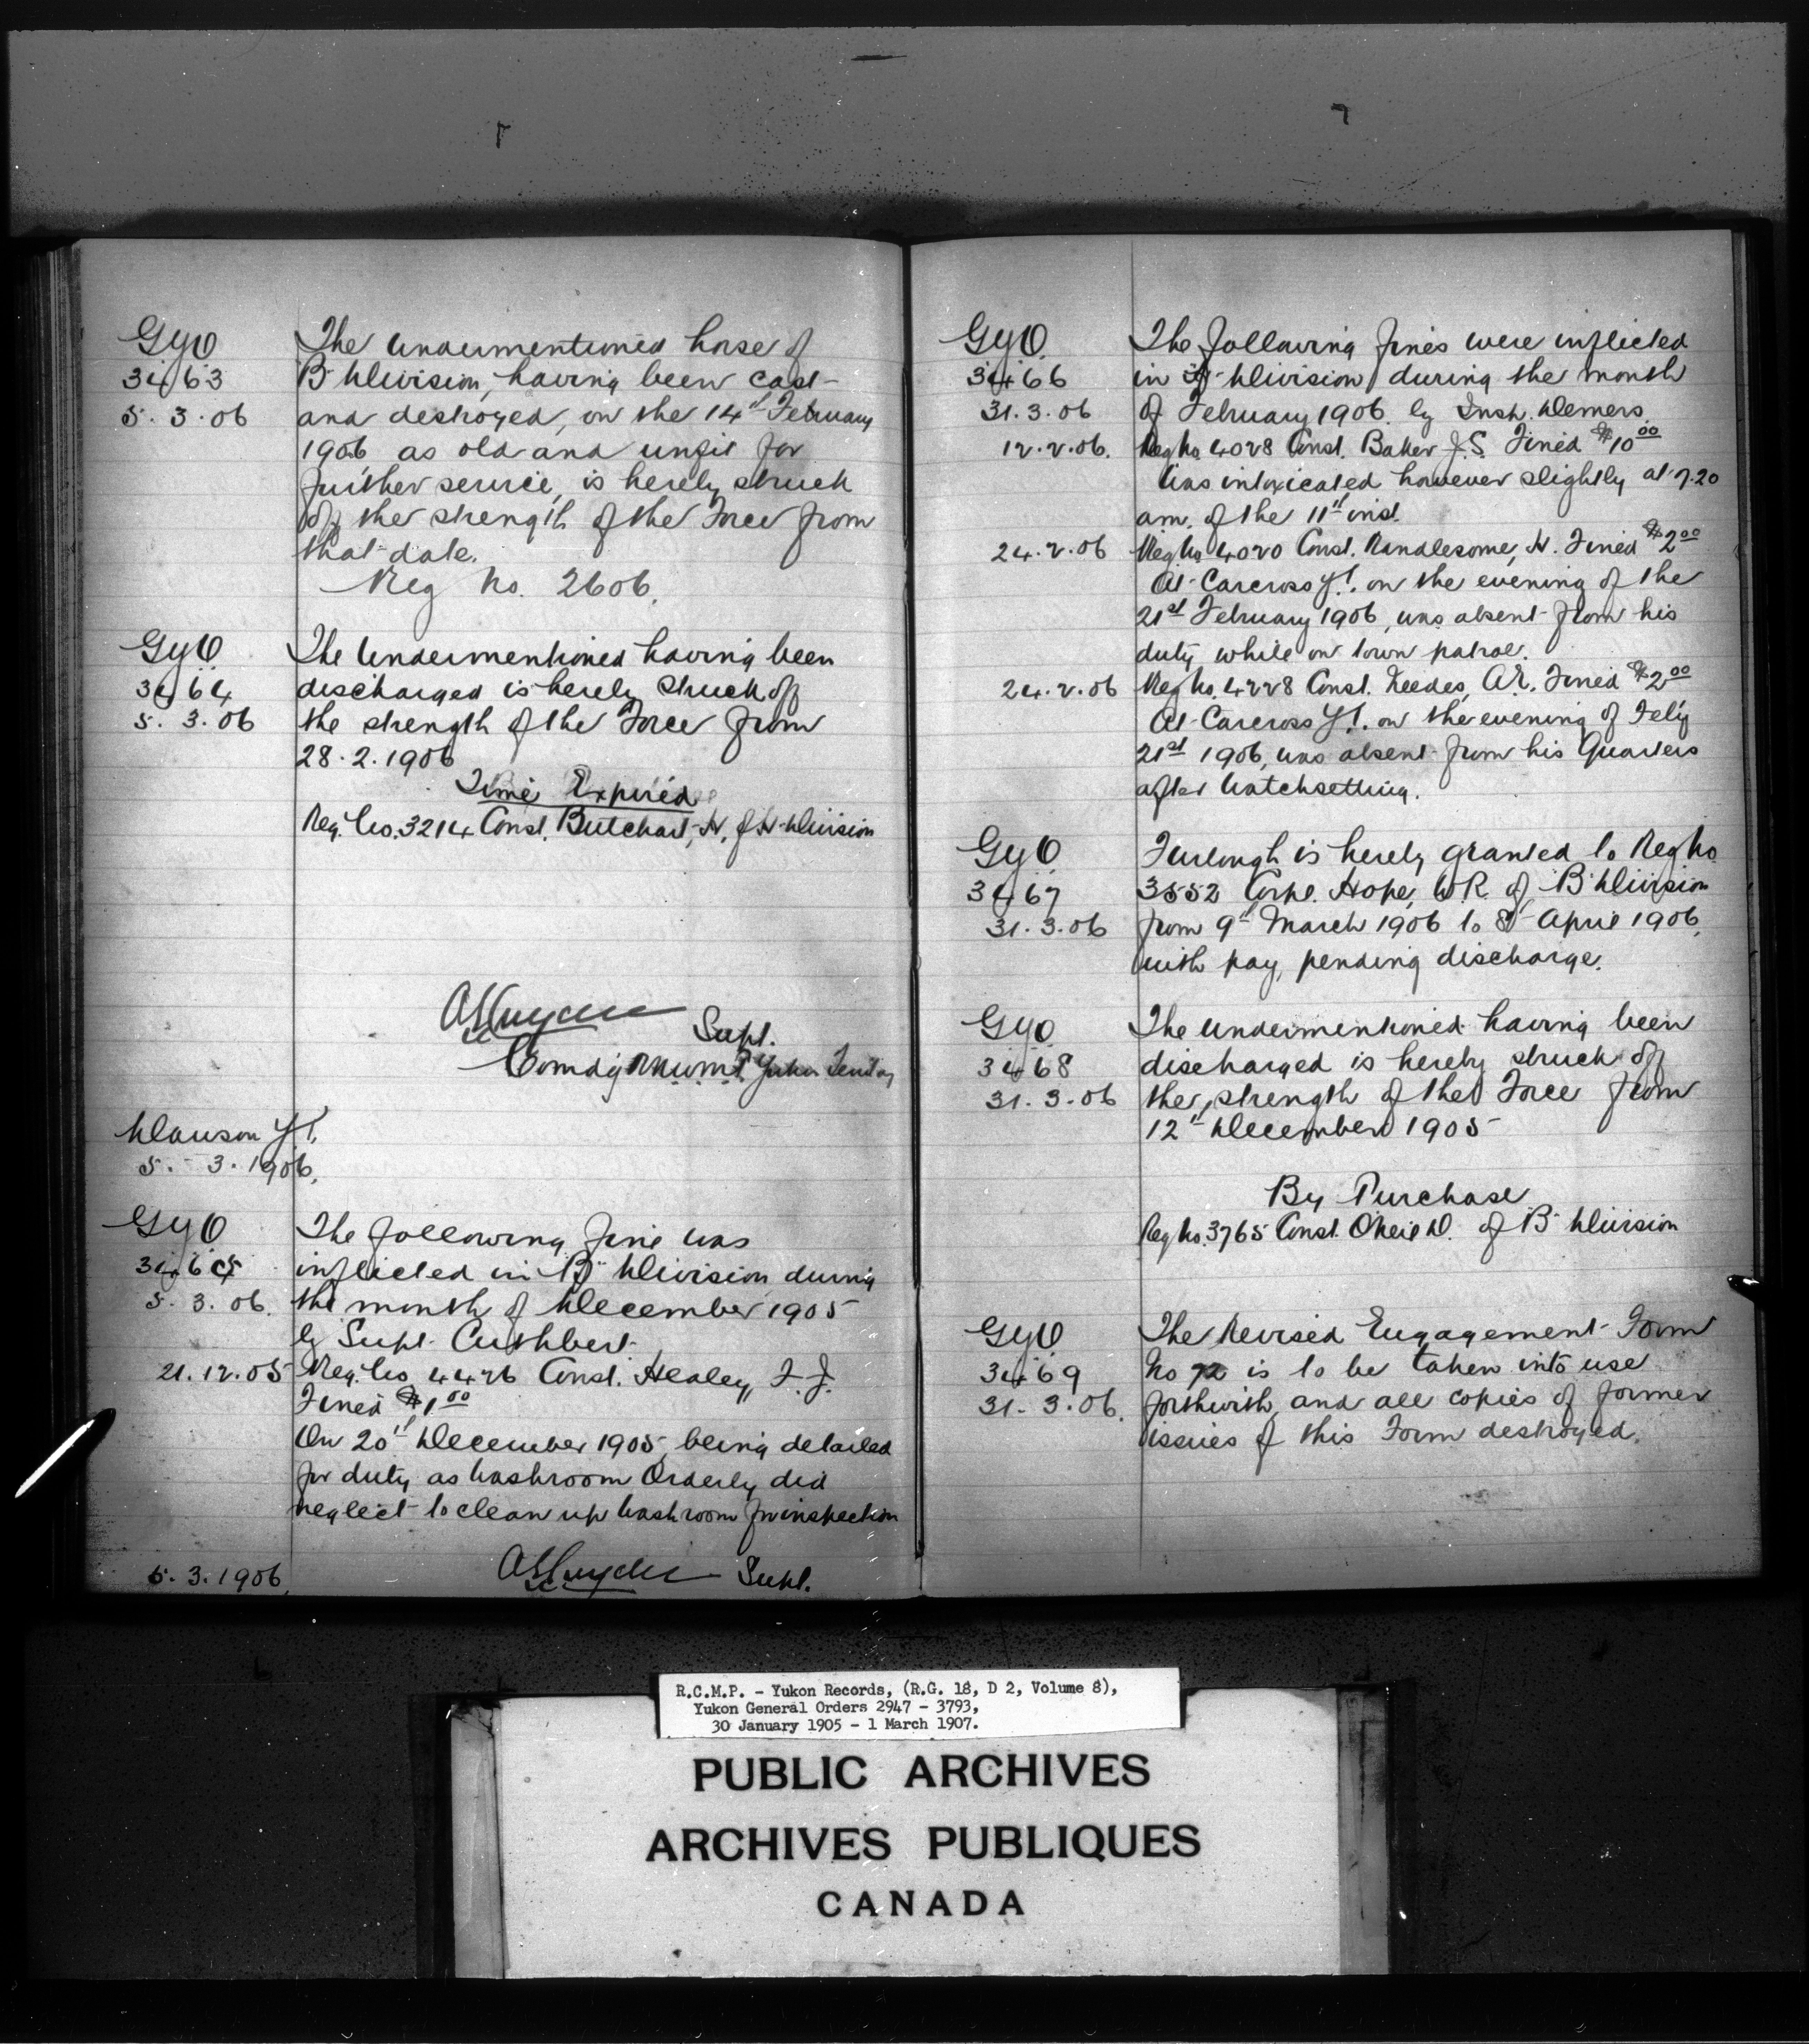 GyO
3463
5.3.06
The undermentioned horse of
B Division, having been cast
and destroyed, on the 14th February
1906 as old and unfit for
further service, is hereby struck
off the strength of the Force from
that date.
Reg No. 2606.
GyO
3464
5.3.06
The Undermentioned having been
discharged is hereby struck off
the strength of the Force from
28.2.1906
Time Expired
Reg. No. 3214 Const. Butchart, H. of H Division
Supt.
Comdg R.N.W.M.P. Yukon Territory
Dawson Y.T.
5.-3.1906.
GyO
3465
5.3.06.
The following fine was
inflicted in "B" Division during
the month of December 1905
by Supt. Cuthbert.
21.12.05 Reg. No 4426 Const. Healey, F.J.
Fined $1.00
On 20th December 1905, being detailed
for duty as washroom Orderly did
neglect to clean up washroom for inspection
5.3.1906. Supt.
GyO.
3466
31.3.06
The following fines were inflicted
in H Division during the month
of February 1906. by Insp. Demers.
12.2.06. Reg No. 4028 Const. Baker J.S. Fined $10.00
Was intoxicated however slightly at 7.20
am. of the 11th inst.
24.2.06 Reg No. 4020 Const. Randlesome, H. Fined $2.00
At Carcross Y.T. on the evening of the
21st February 1906, was absent from his
duty while on town patrol.
24.2.06 Reg No. 4228 Const. Leedes, A.E. Fined $2.00
At Carcross Y.T. on the evening of Feby
21st 1906, was absent from his Quarters
after Watchsetting.
GyO.
3467
31.3.06
Furlough is hereby granted to Reg No.
3552 Corpl. Hope, W.R. of "B" Division
from 9th March 1906 to 8th April 1906,
with pay, pending discharge.
GyO
3468
31.3.06
The undermentioned having been
discharged is hereby struck off
the strength of the Force from
12th December 1905
By Purchase
Reg No. 3765 Const. O'Neil D. of "B" Division
GyO.
3469
31.3.06.
The Revised Engagement Form
No 72 is to be taken into use
forthwith, and all copies of former
issues of this Form destroyed.
R.C.M.P. - Yukon Records, (R.G. 18, D 2, Volume 8),
Yukon General Orders 2947 - 3793,
30 January 1905 - 1 March 1907.
PUBLIC ARCHIVES
ARCHIVES PUBLIQUES
CANADA